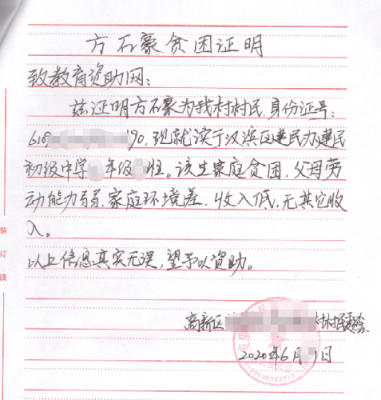 方石豪贫困证明
致教育资助网：
兹证明方石豪为我村村民，身份证号：
618 190，现就读于汉滨区建民办建民
初级中学 年级 班。该生家庭贫困，父母劳
动能力弱、家庭环境差，收入低，无其它收
入。
以上信息真实无误，望予以资助。
高新区 村村委会
2020年6月 日
装订线